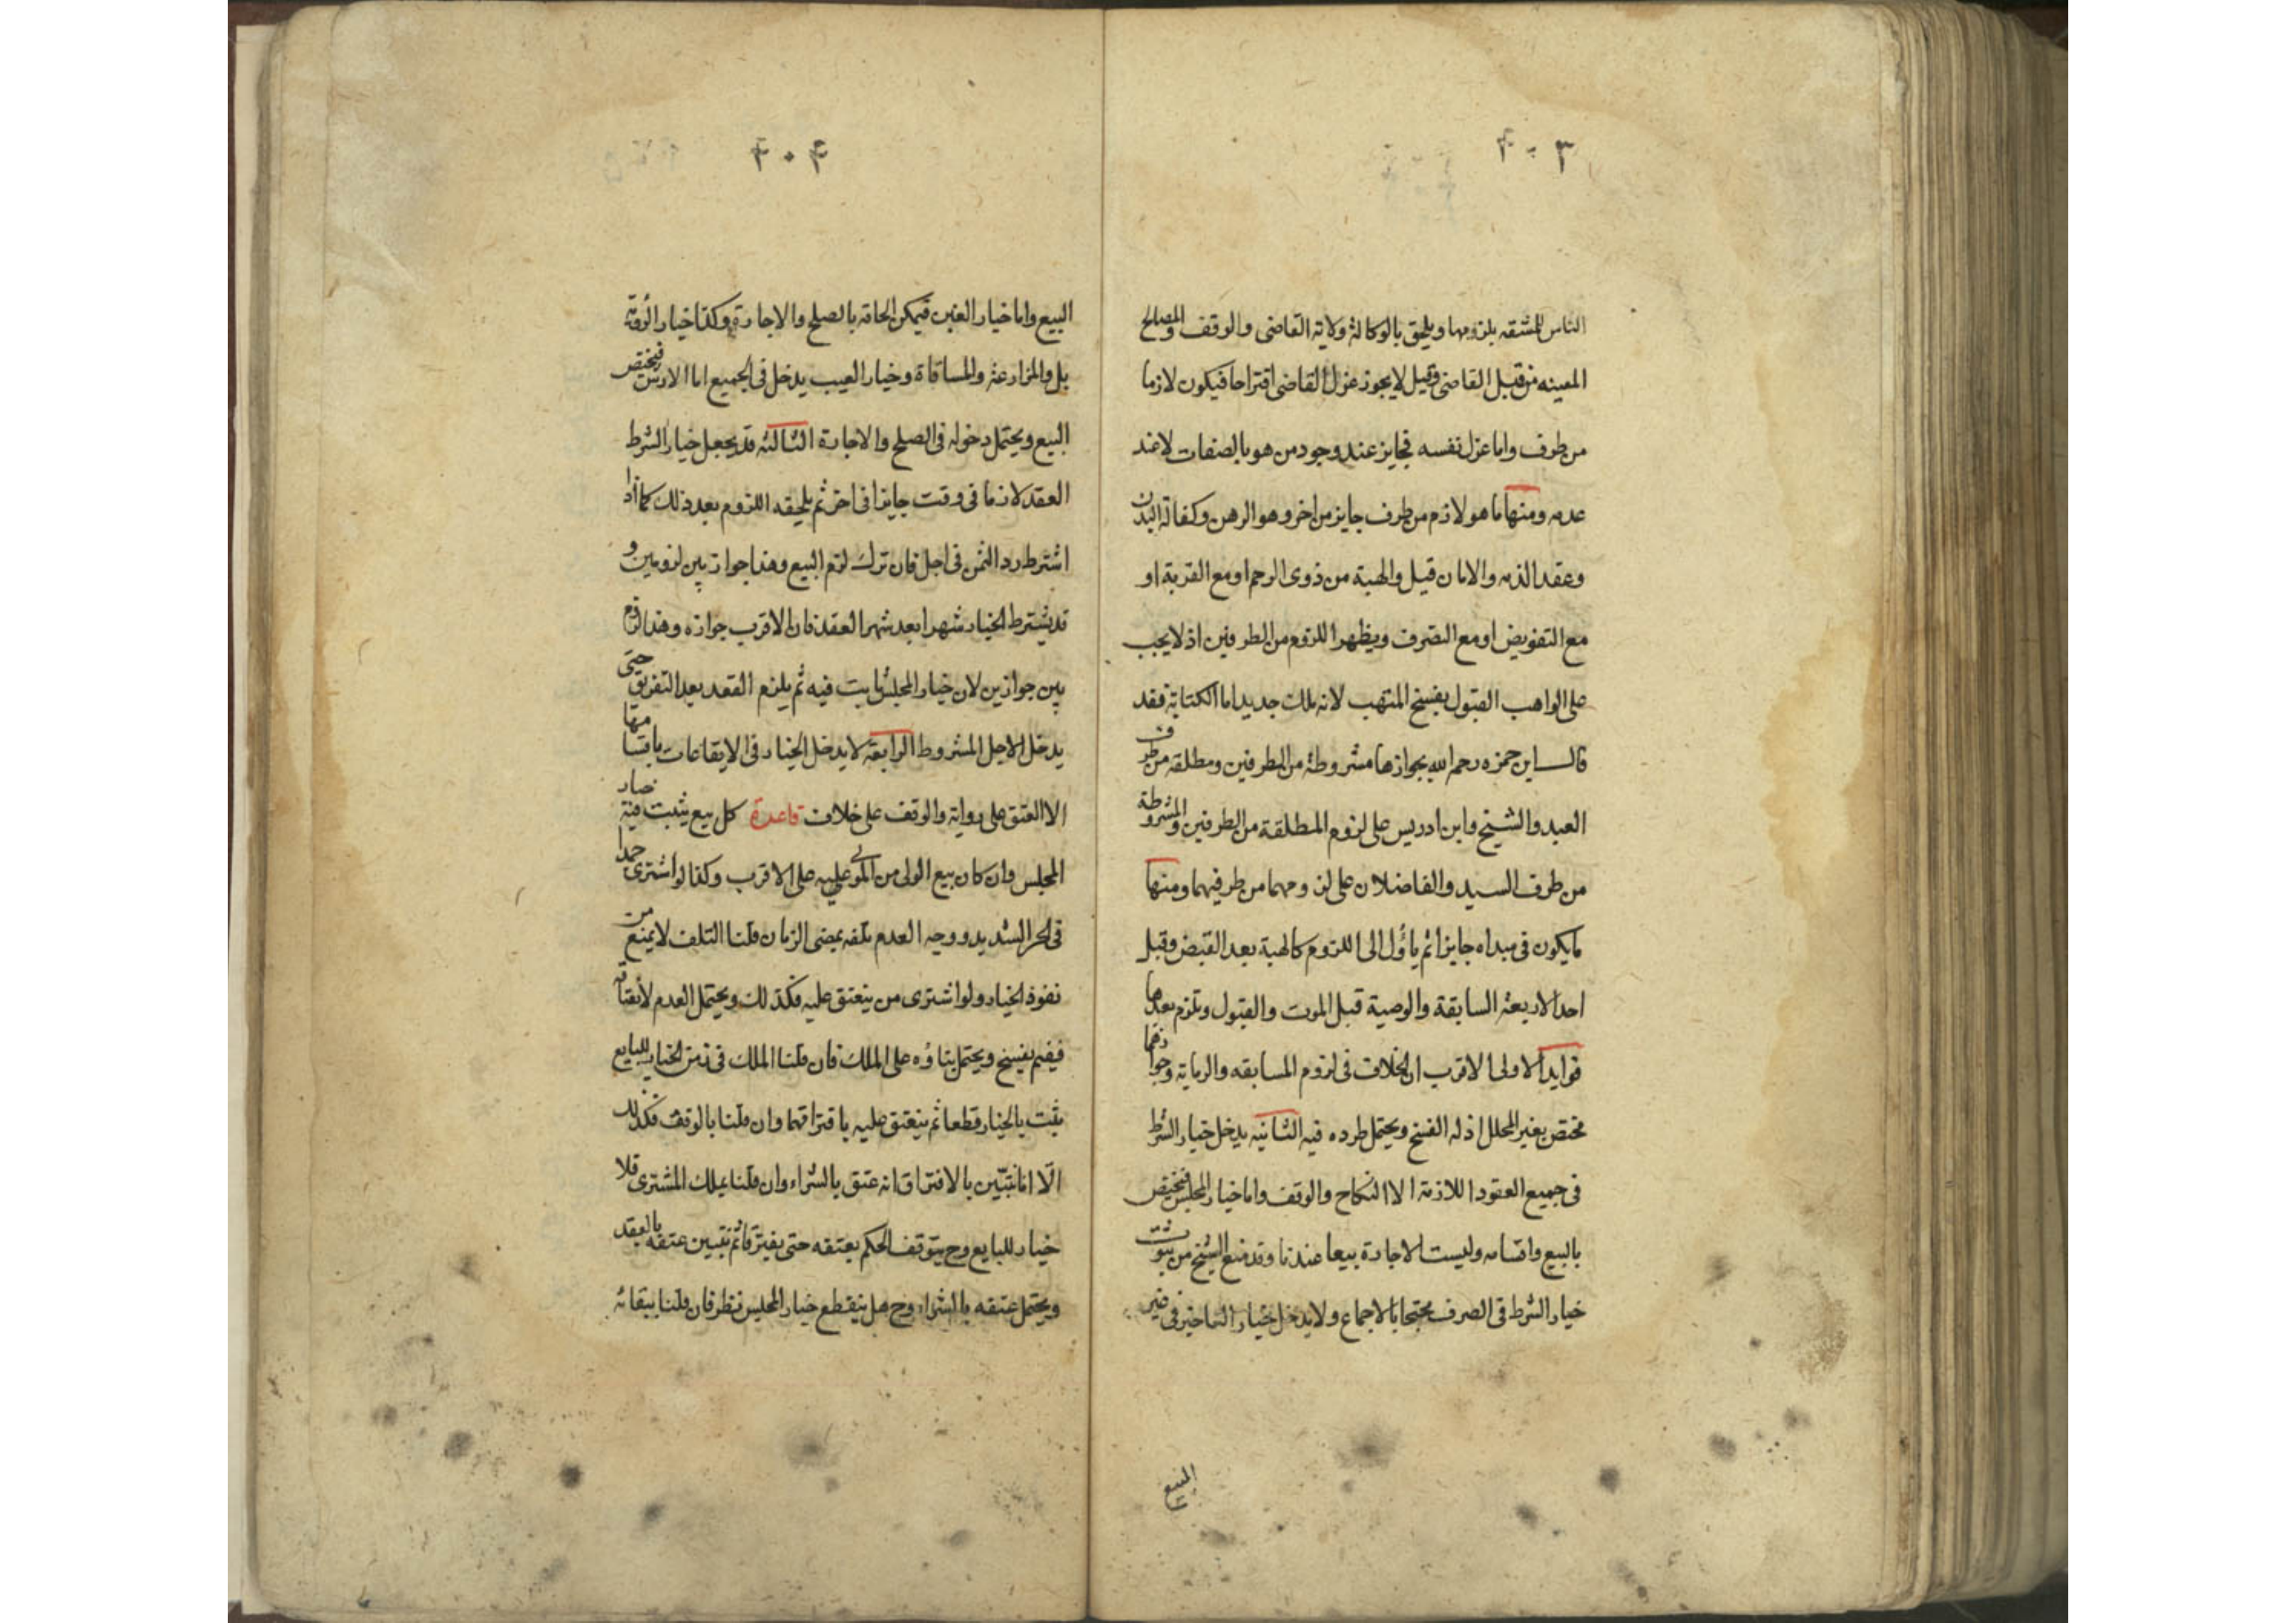 ۴۰۳
الناس للمشقه بلزومها ويلحق بالوكالة ولاية القاضى والوقف والمصالح
المعينه من قبل القاضى وقيل لا يجوز عزل القاضى اقتراحا فيكون لازما
من طرف واما عزل نفسه فجايز عند وجود من هو بالصفات لا عند
عدمه ومنها ما هو لازم من طرف جايز من اخر وهو الرهن وكفالة البدن
وعقد الذمه والامان قيل والهبة من ذوى الرحم او مع القربة او
مع التفويض او مع التصرف ويظهر اللزوم من الطرفين اذ لا يجب
على الواهب القبول بفسخ المتهب لانه ملك جديد اما الكتابة فقد
قال ابن حمزه رحمه الله بجوازها مشروطة من الطرفين ومطلقه من طرف
العبد والشيخ وابن ادريس على لزوم المطلقة من الطرفين والمشروطة
من طرف السيد والفاضلان على لزومهما من طرفيهما ومنها
ما يكون فى مبداه جايزا ثم ياؤل الى اللزوم كالهبة بعد القبض وقبل
احد الاربعة السابقة والوصية قبل الموت والقبول وتلزم بعدها
فوايد الاولى الاقرب ان الخلاف فى لزوم المسابقه والرماية وجوازهما
مختص بغير المحلل اذ له الفسخ ويحتمل طرده فيه الثانيه يدخل خيار الشرط
فى جميع العقود اللازمة الا النكاح والوقف واما خيار المجلس فيختص
بالبيع واقسامه وليست الاجارة بيعا عندنا وقد منع الشيخ من ثبوت
خيار الشرط فى الصرف محتجا بالاجماع ولا يدخل خيار التاخير فى غير
البيع
۴۰۴
البيع واما خيار الغبن فيمكن الحاقه بالصلح والاجارة وكذا خيار الرؤية
بل والمزارعة والمساقاة وخيار العيب يدخل فى الجميع اما الارش فيختص
البيع ويحتمل دخوله فى الصلح والاجارة الثالثه قد يجعل خيار الشرط
العقد لازما فى وقت جايزا فى اخر ثم يلحقه اللزوم بعد ذلك كما اذا
اشترط رد الثمن فى اجل فان ترك لزم البيع وهذا جواز بين لزومين و
قد يشترط الخيار شهرا بعد شهر العقد فان الاقرب جوازه وهذا لزوم
بين جوازين لان خيار المجلس ثابت فيه ثم يلزم العقد بعد التفريق حتى
يدخل الاجل المشروط الرابعة لا يدخل الخيار فى الايقاعات باقسامها
الا العتق على رواية والوقف على خلاف قاعدة كل بيع يثبت فيه خيار
المجلس وان كان بيع الولى من المولى عليه على الاقرب وكذا لو اشترى جمدا
فى الحر الشديد ووجه العدم تلفه بمضى الزمان قلنا التلف لا يمنع من
نفوذ الخيار ولو اشترى من ينعتق عليه فكذلك ويحتمل العدم لانعتاقه
فيفم بفسخ ويحتمل بناؤه على الملك فان قلنا الملك فى زمن الخيار للبايع
يثبت بالخيار قطعا ثم ينعتق عليه بافتراقهما وان قلنا بالوقف فكذلك
الّا انا نتبيّن بالافتراق انه عتق بالشراء وان قلنا بملك المشترى فلا
خيار للبايع وح يتوقف الحكم بعتقه حتى يفترقا ثم نتبين عتقه بالعقد
ويحتمل عتقه بالشراء وح هل ينقطع خيار المجلس نظر فان قلنا ببقائه